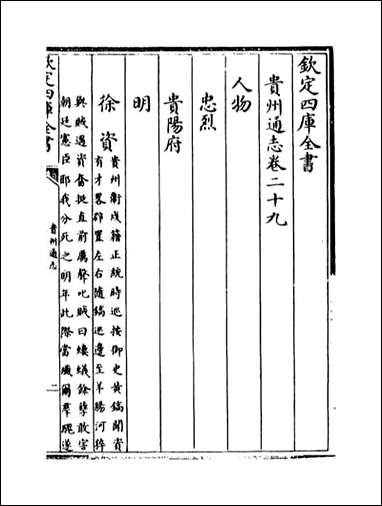 欽定四庫全書
貴州通志卷二十九
人物
忠烈
貴陽府
明
徐資
貴州衛戍籍正統時巡按御史黃鎬聞資
有才畧辟置左右隨鎬巡邊至羊腸河猝
與賊遇資奮挺直前厲聲叱賊曰螻蟻餘孽敢害
朝廷憲臣耶我分死之明年此際當殲爾羣醜遂
欽定四庫全書
貴州通志